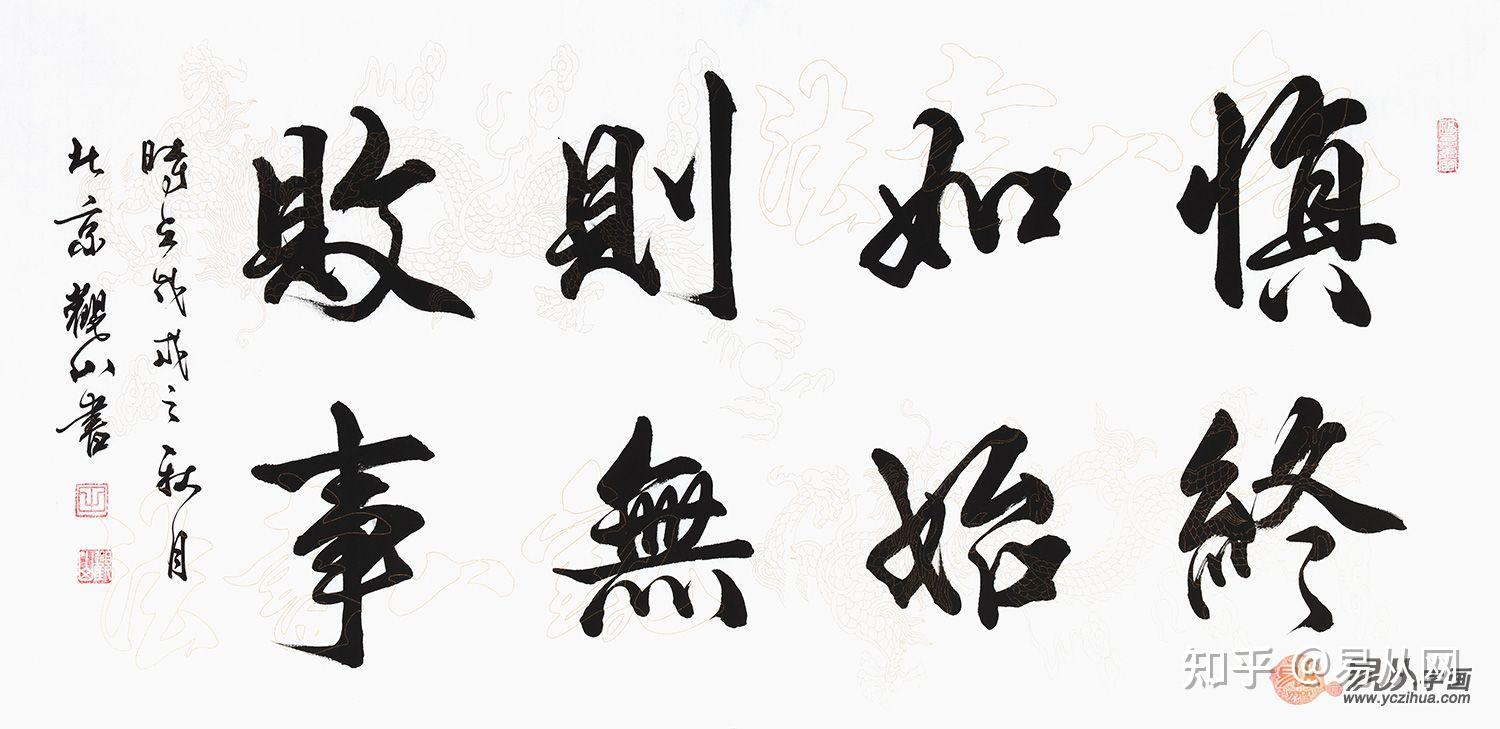 慎終
如始
則無
敗事
時在戊戌之秋月
北京觀山書
知乎 @易从网
易从字画
www.yczihua.com